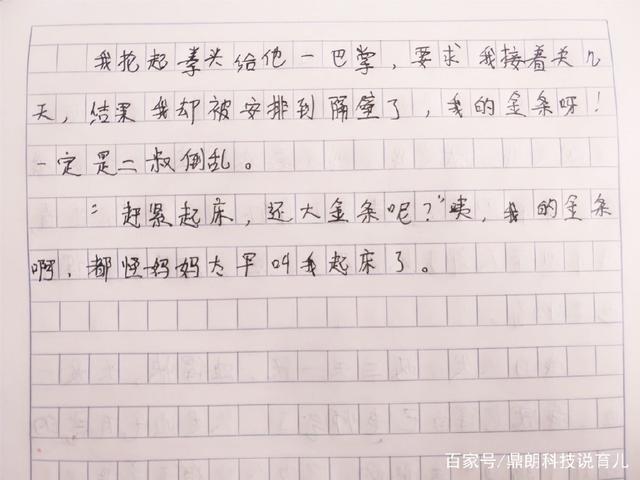 我抡起拳头给他一巴掌，要求我接着关几
天，结果我却被安排到隔壁了，我的金条呀！
一定是二叔倒乱。
“赶紧起床，还大金条呢？”咦，我的金条
啊，都怪妈妈大早叫我起床了。
百家号/鼎朗科技说育儿